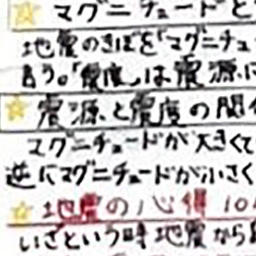 ☆ マグニチュードと
地震のきぼを「マグニチュ
言う。「震度」は震源に
☆ 震源と震度の関
マグニチュードが大きくて
逆にマグニチュードが小さく
☆ 地震の心得 10
いざという時地震から